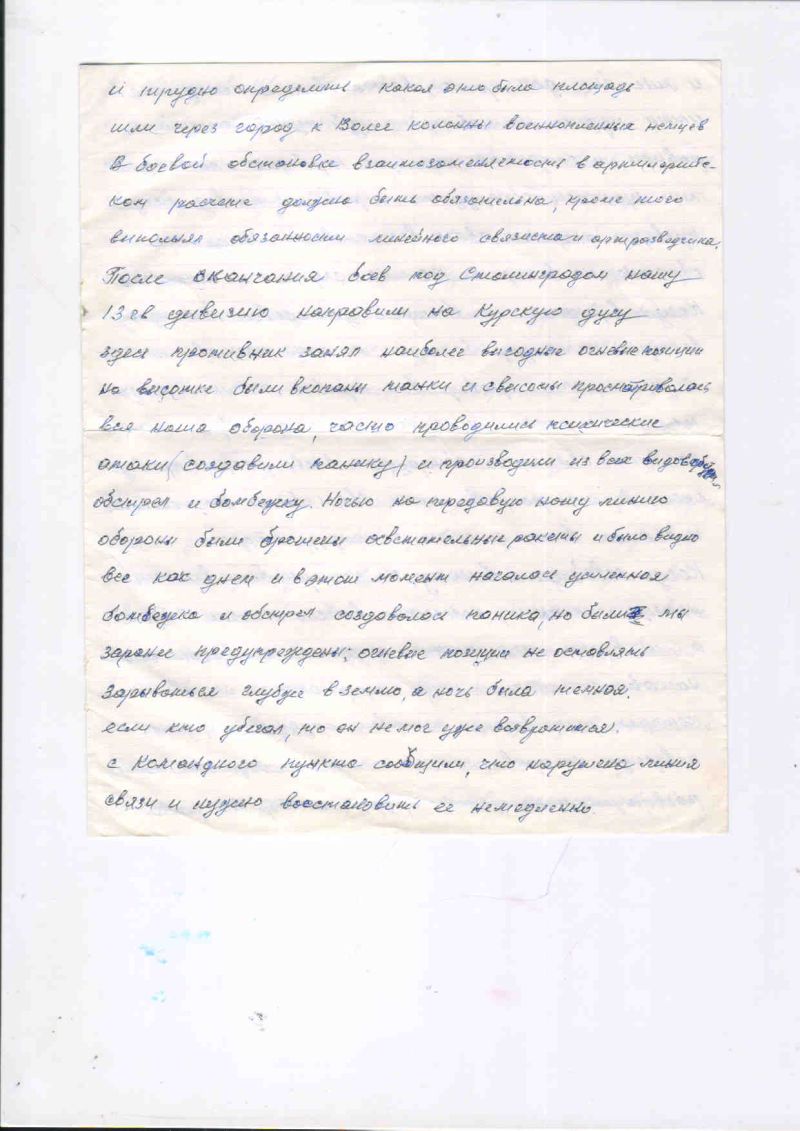 и трудно определить какая это была площадь
шли через город к Волге колонны военнопленных немцев
В боевой обстановке взаимозаменяемость в артиллерийс-
ком расчете должна быть обязательна, кроме того
выполнял обязанности линейного связиста и артразведчика.
После окончания боев под Сталинградом нашу
13 гв дивизию направили на Курскую дугу
здесь противник занял наиболее выгодные огневые позиции
на высотке были вкопаны танки и свысоты просматривалась
вся наша оборона, часто проводились психические
атаки (создавали панику) и производили из всех видов
обстрел и бомбежку. Ночью на передовую нашу линию
обороны были брошены осветительные ракеты и было видно
все как днем и в этот момент началась усиленная
бомбежка и обстрел создавалась паника, но были мы
заранее предупреждены; огневые позиции не оставлять
зарываться глубже в землю, а ночь была темная.
если кто убегал, то он не мог уже возвратится.
с командного пункта сообщили, что нарушена линия
связи и нужно восстановить ее немедленно.